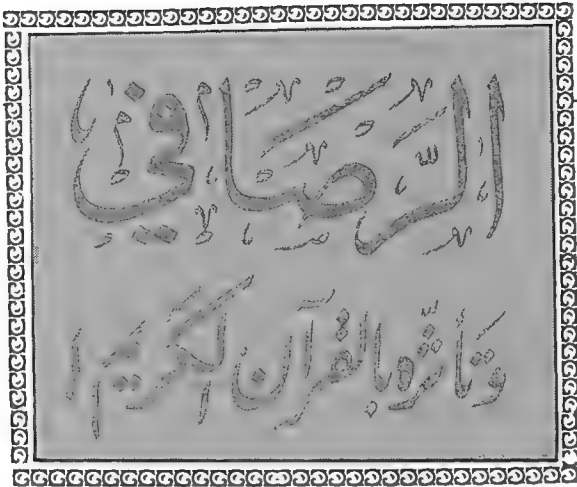 الرُّصَافي
وتأثّره بالقرآن الكريم